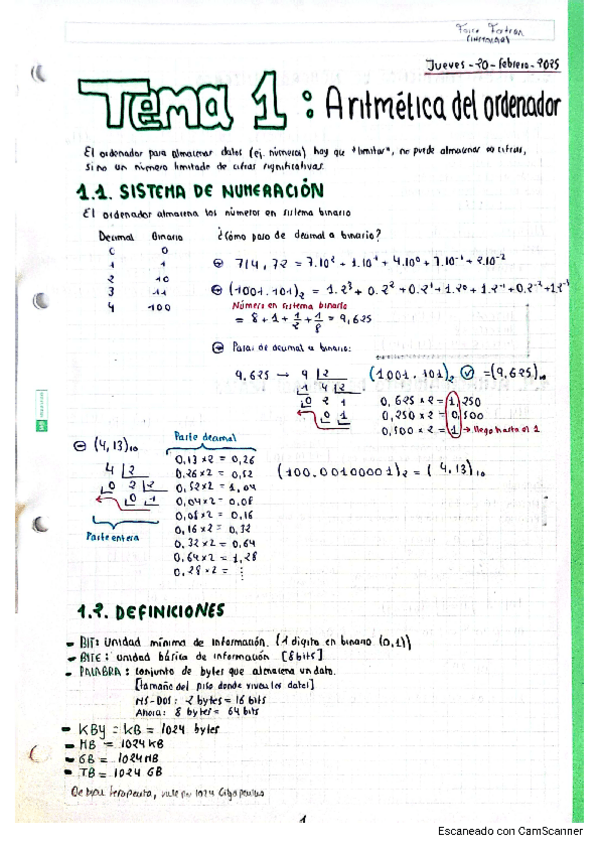 Jueves - 20 - febrero - 2025
Tema 1 : Aritmética del ordenador
El ordenador para almacenar datos (ej. números) hay que "limitar", no puede almacenar ∞ cifras,
sino un número limitado de cifras significativas.
1.1. SISTEMA DE NUMERACIÓN
El ordenador almacena los números en sistema binario
Decimal Binario
0 0
1 1
2 10
3 11
4 100
¿Cómo paso de decimal a binario?
714,72 = 7.10² + 1.10¹ + 4.10⁰ + 7.10⁻¹ + 2.10⁻²
(1001.101)₂ = 1.2³ + 0.2² + 0.2¹ + 1.2⁰ + 1.2⁻¹ + 0.2⁻² + 1.2⁻³
Número en sistema binario
= 8 + 1 + 1/2 + 1/8 = 9,625
Pasar de decimal a binario:
9,625 → 9 |2
1 4 |2
0 2 |2
0 1
(1001.101)₂ = (9,625)₁₀
0,625 x 2 = 1,250
0,250 x 2 = 0,500
0,500 x 2 = 1 → llego hasta el 1
(4,13)₁₀
4 |2
0 2 |2
0 1
Parte entera
Parte decimal
0,13 x 2 = 0,26
0,26 x 2 = 0,52
0,52 x 2 = 1,04
0,04 x 2 = 0,08
0,08 x 2 = 0,16
0,16 x 2 = 0,32
0,32 x 2 = 0,64
0,64 x 2 = 1,28
0,28 x 2 = ⋮
(100.00100001)₂ = (4,13)₁₀
1.2. DEFINICIONES
- BIT: Unidad mínima de información. (1 dígito en binario (0,1))
- BITE: unidad básica de información [8 bits]
- PALABRA: conjunto de bytes que almacena un dato.
[tamaño del piso donde viven los datos]
MS-DOS: 2 bytes = 16 bits
Ahora: 8 bytes = 64 bits
- KBy = KB = 1024 bytes
- MB = 1024 KB
- GB = 1024 MB
- TB = 1024 GB
1
Escaneado con CamScanner